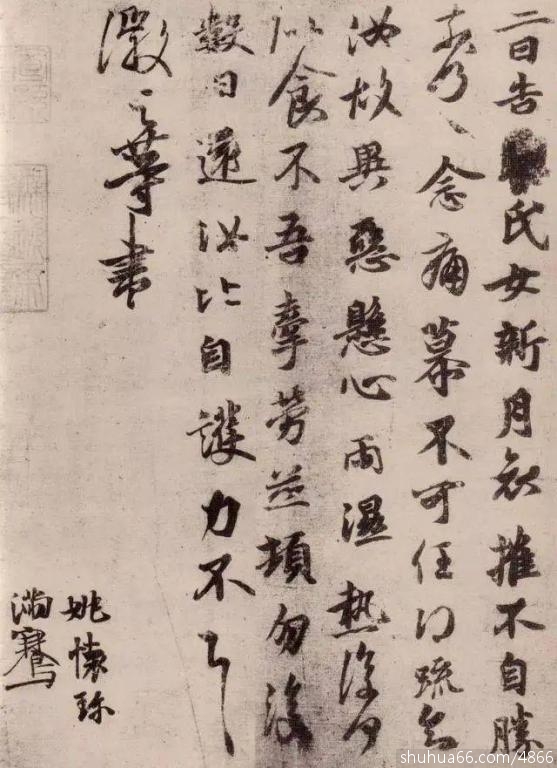 二日告氏女新月哀摧不自勝
奈何〻念痛慕不可任得疏知
汝故異惡懸心雨濕熱復何
似食不吾牽勞並頓勿復
數日還汝比自護力不具
徽之等書
姚懷珍
滿騫
shuhua66.com/4866